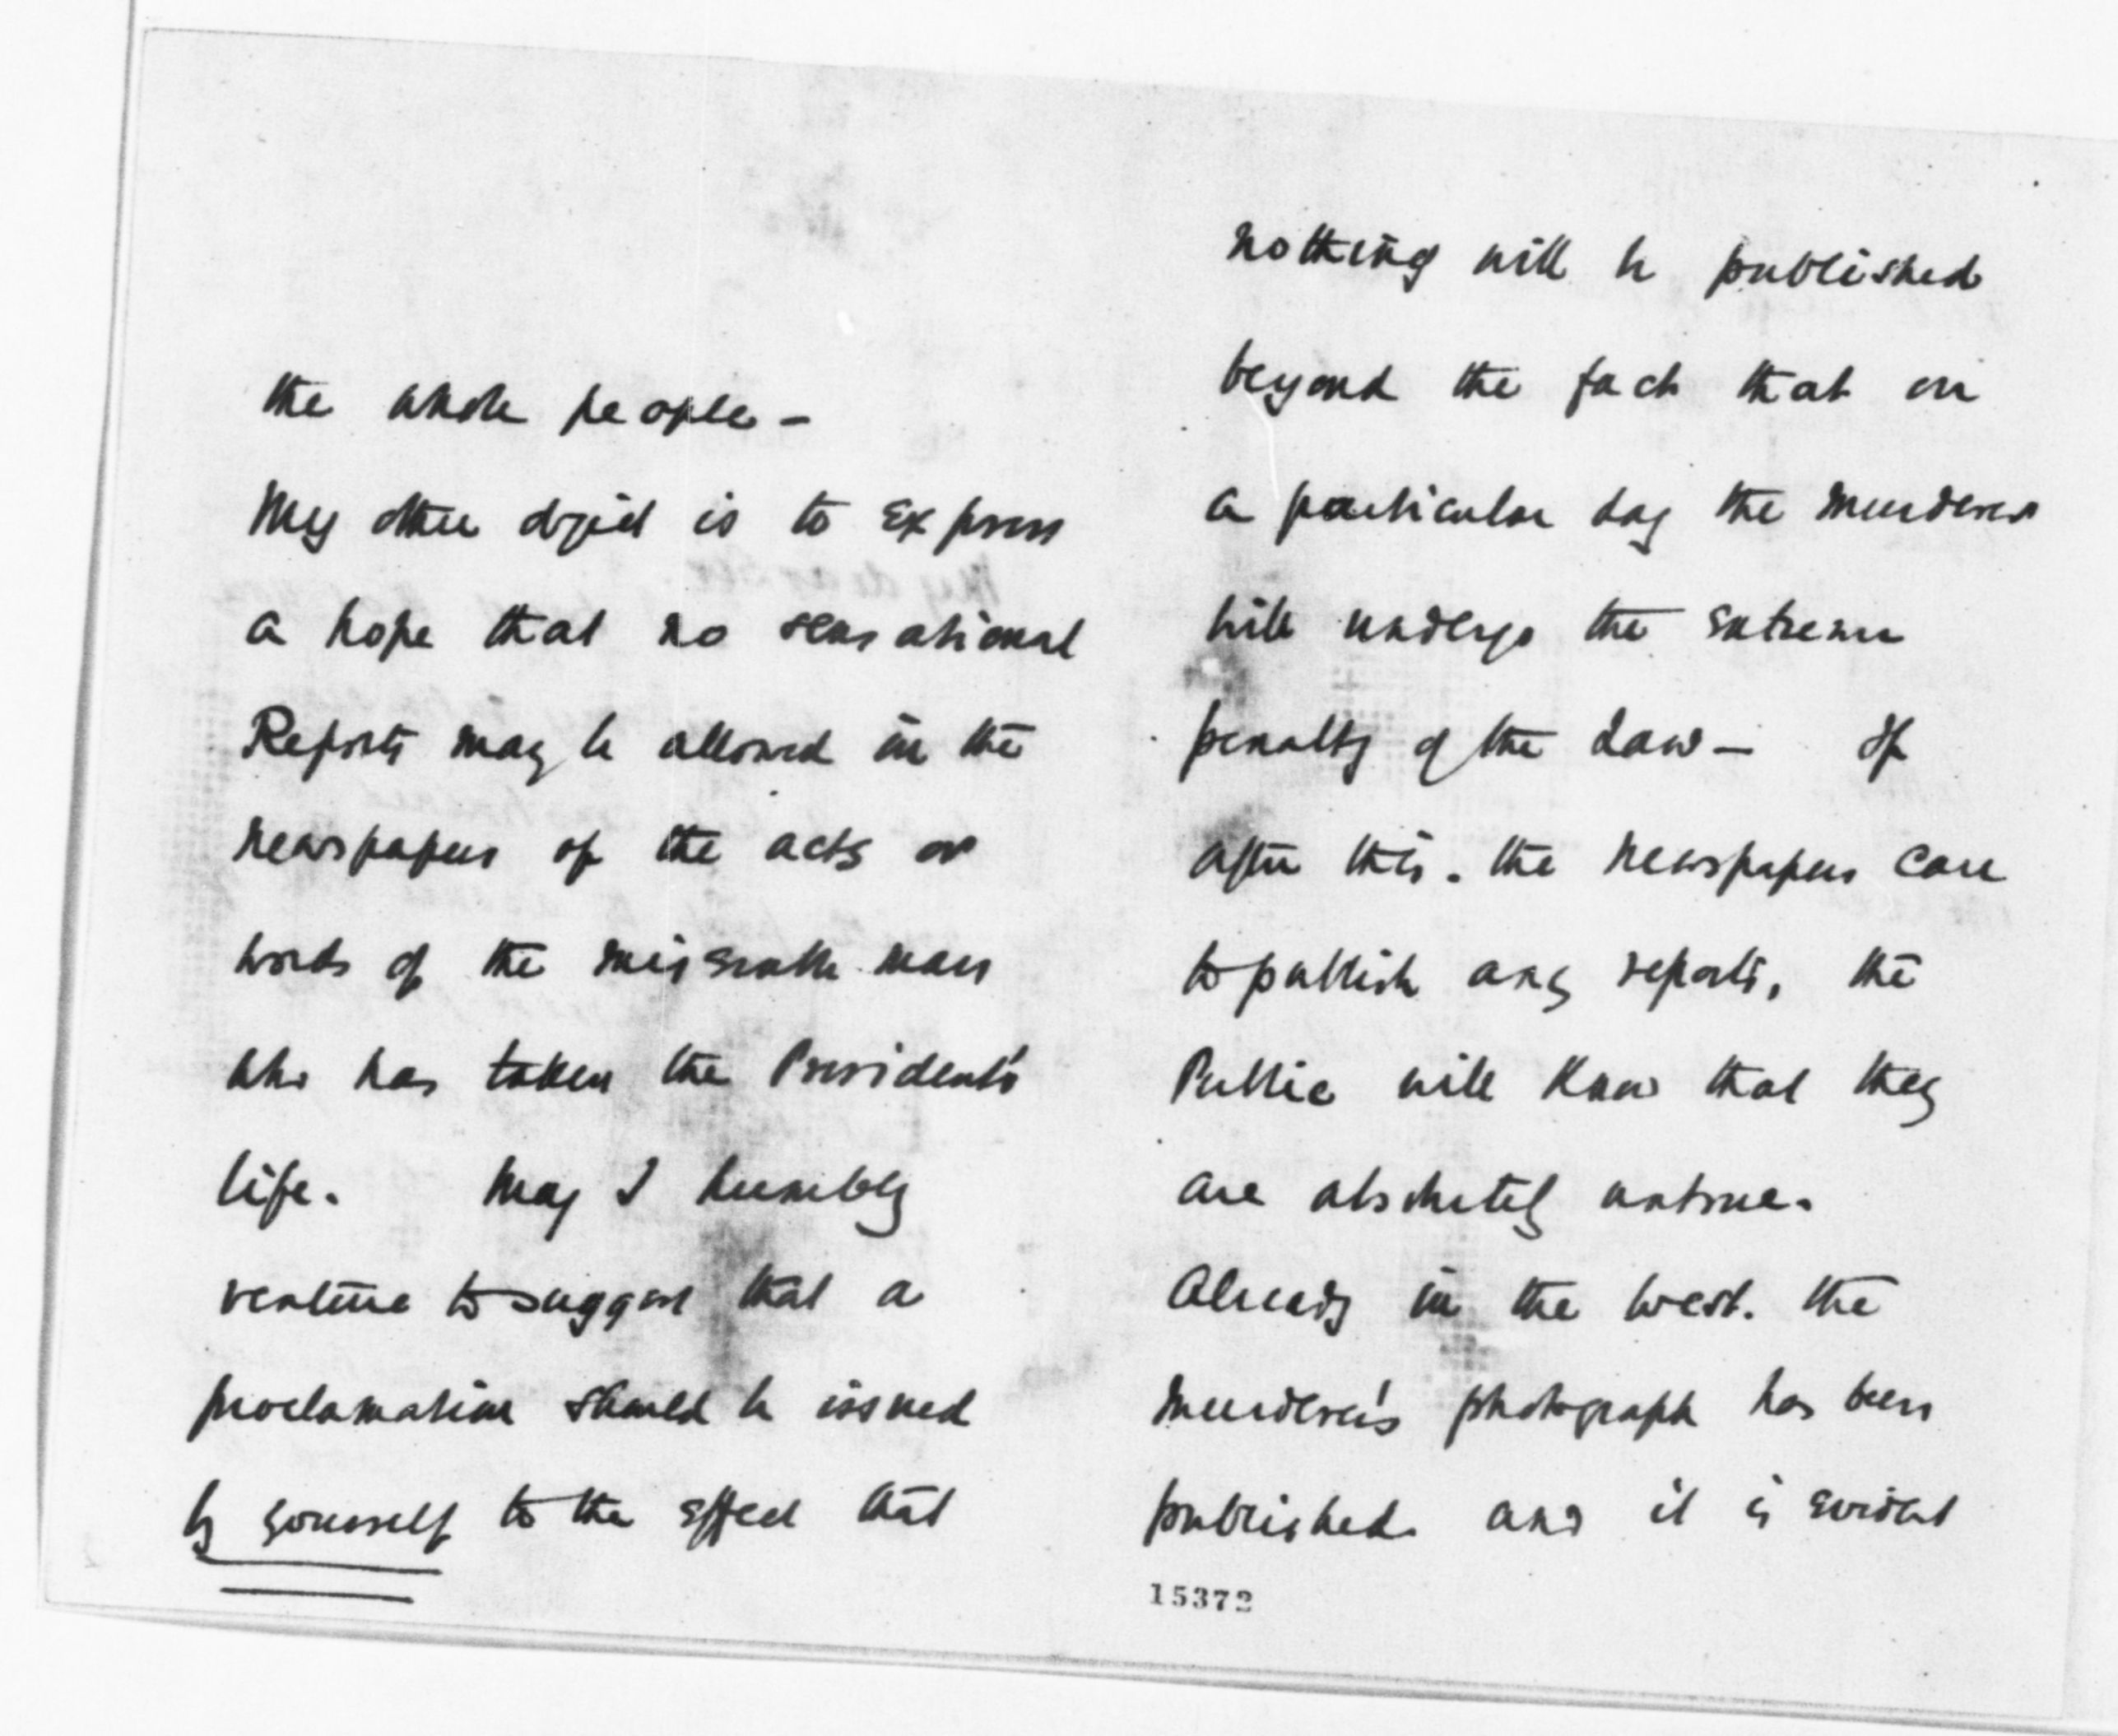 the whole people –
My other object is to express
a hope that no sensational
Reports may be allowed in the
newspapers of the acts or
words of the miserable man
who has taken the President's
life. May I humbly
venture to suggest that a
proclamation should be issued
by yourself to the effect that
nothing will be published
beyond the fact that on
a particular day the murderer
will undergo the extreme
penalty of the Law – If
after this. the newspapers care
to publish any reports, the
Public will know that they
are absolutely untrue.
Already in the West. the
murderer's photograph has been
published. and it is evident
15372